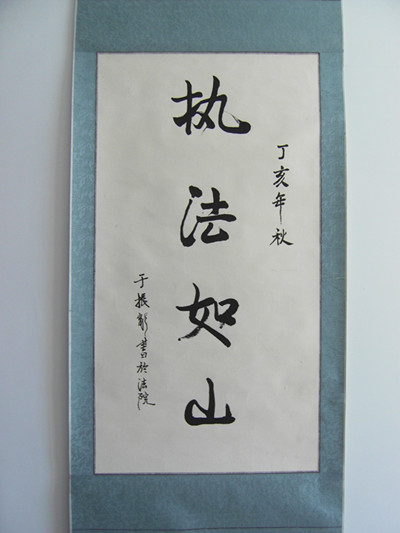 丁亥年秋
执法如山
于振彰書於法院